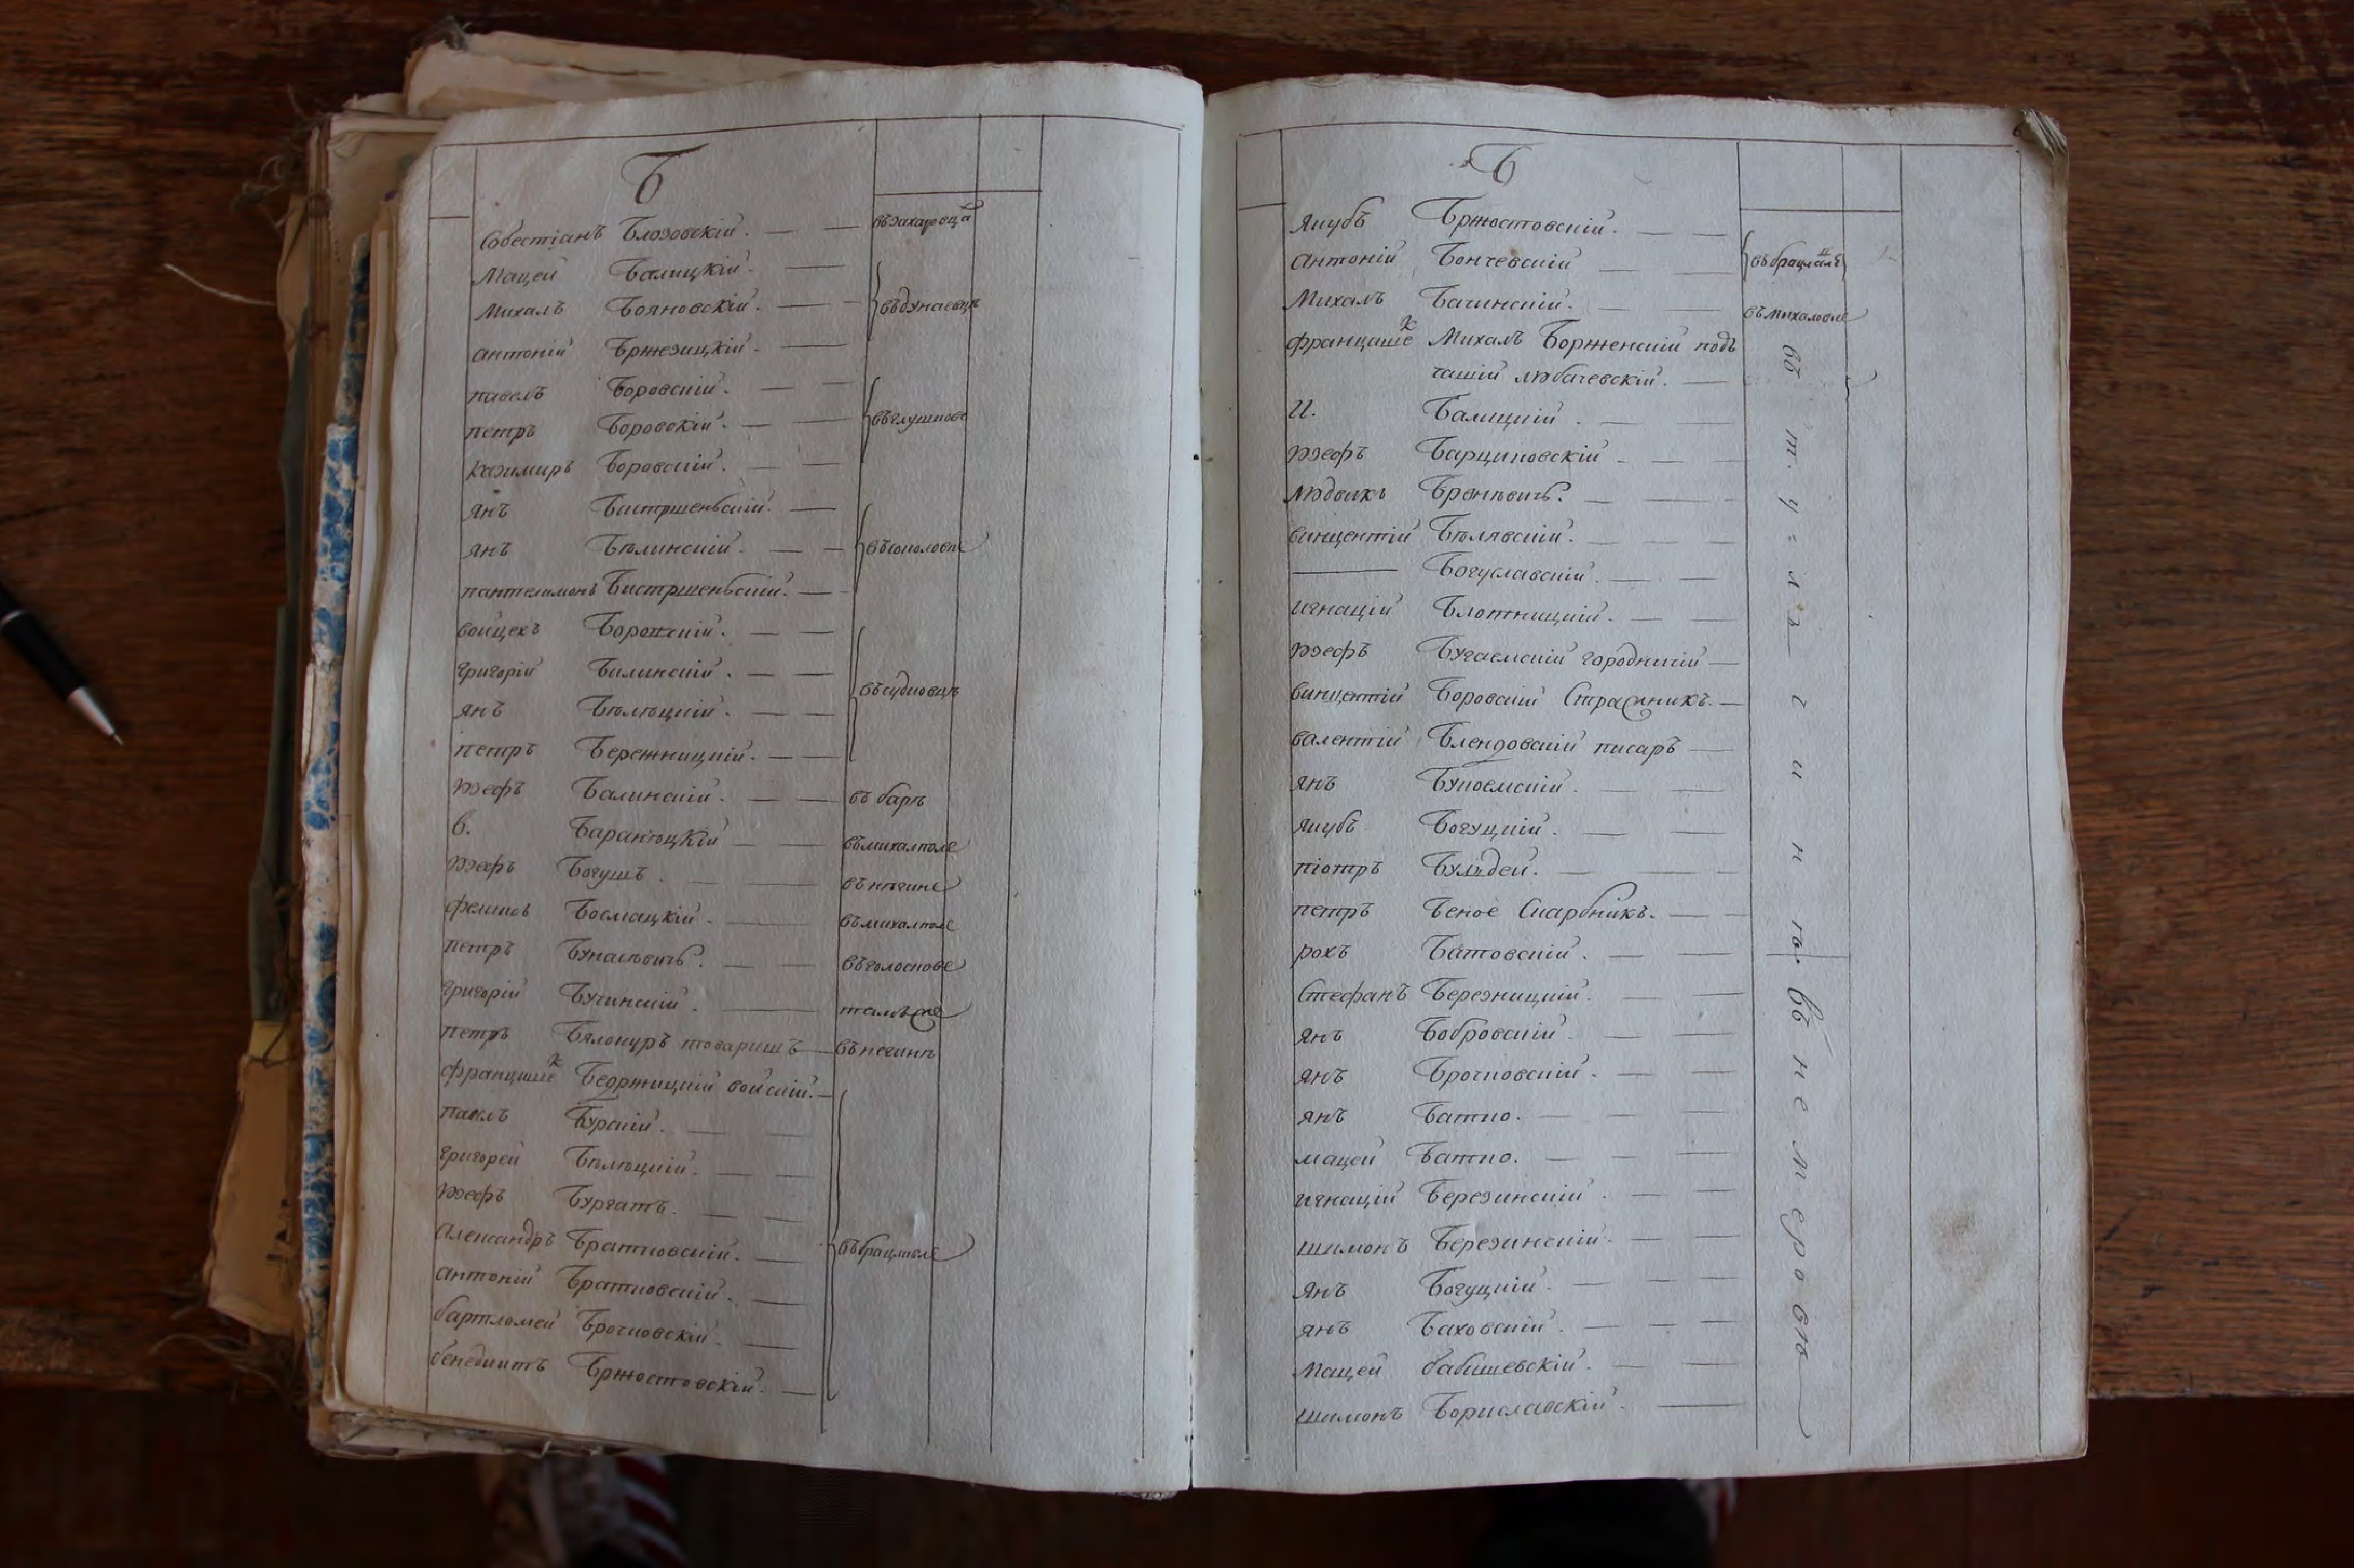 Б
Собестіанъ Блозовскій. въ захаровца
Мацей Балицкій.
Михалъ Бояновскій. въ дунаевцѣ
антоній Бржезицкій.
павелъ Боровскій.
петръ Боровскій. въ глушкове
казимиръ Боровскій.
янъ Бистршенбскій.
янъ Бѣлинскій. въ соколовке
пантелимонъ Бистршенбскій.
войцехъ
григорій Билинскій.
янъ Бѣлѣцкій. въ судковцѣ
петръ Бережницкій.
юзефъ Балинскій. въ барѣ
в. Баранѣцкій въ михалполе
юзефъ Богушъ. въ нѣгине
феликсъ въ михалполе
петръ въ голоскове
григорій Бучинскій. тамъже
петръ Бялокуръ товаришъ въ негинѣ
францишекъ войскій.
павлъ Бурскій.
григорей Бѣлѣцкій.
юзефъ Бургатъ.
Александръ Братковскій. въ брацлавле
антоній Братковскій.
бартломей Брочковскій.
бенедиктъ Бржостовскій.
Б
Якубъ Бржостовскій.
антоній Бончевскій въ брацлавлѣ
Михалъ Бачинскій. въ михаловке
францишек Михалъ Борженскій подъ
чашій любачевскій.
И. Балицкій.
юзефъ Барциковскій
людвикъ
винцентій Бѣлявскій.
Богуславскій.
игнацій Блотницкій.
юзефъ Бугаемскій городничій
винцентій Боровскій Стражникъ.
валентій Блендовскій писаръ
янъ Букоемскій.
якубъ Богуцкій.
піотръ
петръ Беное Скарбникъ.
рохъ Батовскій.
Стефанъ Березницкій.
янъ Бобровскій
янъ Брочковскій.
янъ Батко.
мацей Батко.
игнацій Березинскій.
шимонъ Березинскій.
янъ Богуцкій.
янъ Баховскій.
Мацей бабишевскій.
шимонъ Бориславскій.
въ
въ немеровѣ